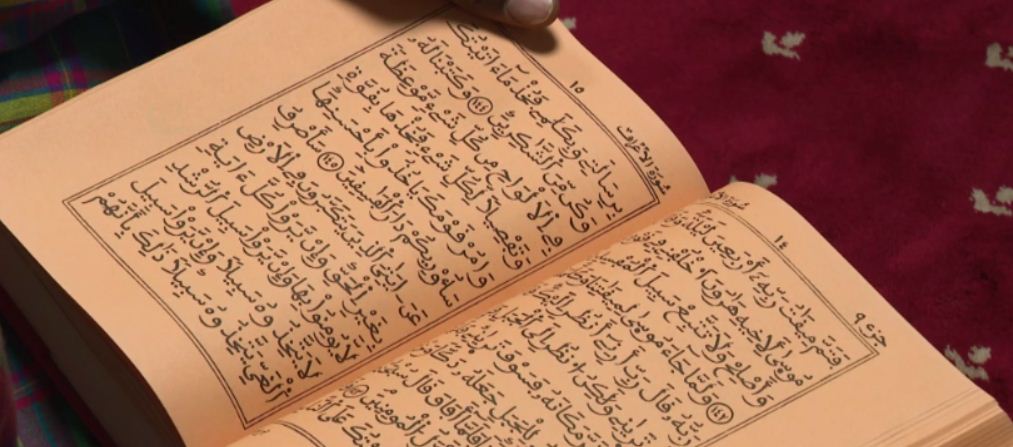 جزء ٩
١٤
فَتَمَّ مِيقَٰتُ رَبِّهِۦٓ أَرْبَعِينَ لَيْلَةً
مُوسَىٰ لِأَخِيهِ هَٰرُونَ ٱخْلُفْنِى
وَأَصْلِحْ وَلَا تَتَّبِعْ سَبِيلَ ٱلْمُفْسِدِينَ
١٤٢ وَلَمَّا جَآءَ مُوسَىٰ لِمِيقَٰتِنَا
رَبُّهُۥ قَالَ رَبِّ أَرِنِىٓ أَنظُرْ إِلَيْكَ
تَرَىٰنِى وَلَٰكِنِ ٱنظُرْ إِلَى ٱلْجَبَلِ
مَكَانَهُۥ فَسَوْفَ تَرَىٰنِى
لِلْجَبَلِ جَعَلَهُۥ دَكًّا
أَفَاقَ قَالَ
ٱلْمُؤْمِنِينَ
سورة الأعراف
١٥
بِرِسَٰلَٰتِى وَبِكَلَٰمِى فَخُذْ مَآ ءَاتَيْتُكَ
وَكُن مِّنَ ٱلشَّٰكِرِينَ ١٤٤ وَكَتَبْنَا لَهُۥ
فِى ٱلْأَلْوَاحِ مِن كُلِّ شَىْءٍ مَّوْعِظَةً
وَتَفْصِيلًا لِّكُلِّ شَىْءٍ فَخُذْهَا بِقُوَّةٍ
وَأْمُرْ قَوْمَكَ يَأْخُذُوا۟ بِأَحْسَنِهَا
سَأُو۟رِيكُمْ دَارَ ٱلْفَٰسِقِينَ ١٤٥ سَأَصْرِفُ
عَنْ ءَايَٰتِىَ ٱلَّذِينَ يَتَكَبَّرُونَ فِى ٱلْأَرْضِ
بِغَيْرِ ٱلْحَقِّ وَإِن يَرَوْا۟ كُلَّ ءَايَةٍ
لَّا يُؤْمِنُوا۟ بِهَا وَإِن يَرَوْا۟ سَبِيلَ ٱلرُّشْدِ
لَا يَتَّخِذُوهُ سَبِيلًا وَإِن يَرَوْا۟ سَبِيلَ
ٱلْغَىِّ يَتَّخِذُوهُ سَبِيلًا ذَٰلِكَ بِأَنَّهُمْ